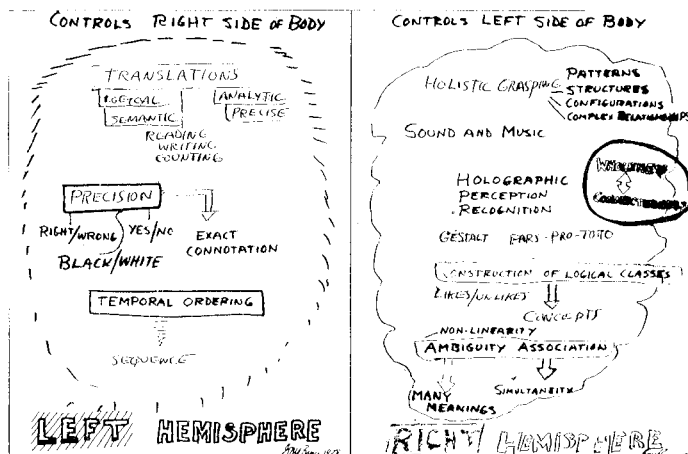 CONTROLS RIGHT SIDE OF BODY
TRANSLATIONS
LOGICAL ANALYTIC
SEMANTIC PRECISE
READING
WRITING
COUNTING
PRECISION
RIGHT/WRONG YES/NO
BLACK/WHITE
EXACT
CONNOTATION
TEMPORAL ORDERING
SEQUENCE
LEFT HEMISPHERE
CONTROLS LEFT SIDE OF BODY
HOLISTIC GRASPING
PATTERNS
STRUCTURES
CONFIGURATIONS
COMPLEX RELATIONSHIPS
SOUND AND MUSIC
WHOLENESS
CONNECTEDNESS
HOLOGRAPHIC
PERCEPTION
RECOGNITION
GESTALT PARS-PRO-TOTO
CONSTRUCTION OF LOGICAL CLASSES
LIKES/UNLIKES
CONCEPTS
NON-LINEARITY
AMBIGUITY ASSOCIATION
MANY
MEANINGS
SIMULTANEITY
RIGHT HEMISPHERE